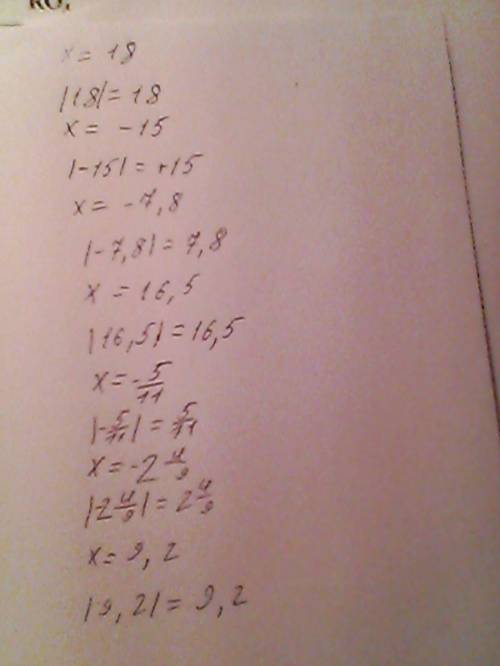 x = 18
|18| = 18
x = -15
|-15| = +15
x = -7,8
|-7,8| = 7,8
x = 16,5
|16,5| = 16,5
x = -5/11
|-5/11| = 5/11
x = -2 4/9
|-2 4/9| = 2 4/9
x = 9,2
|9,2| = 9,2